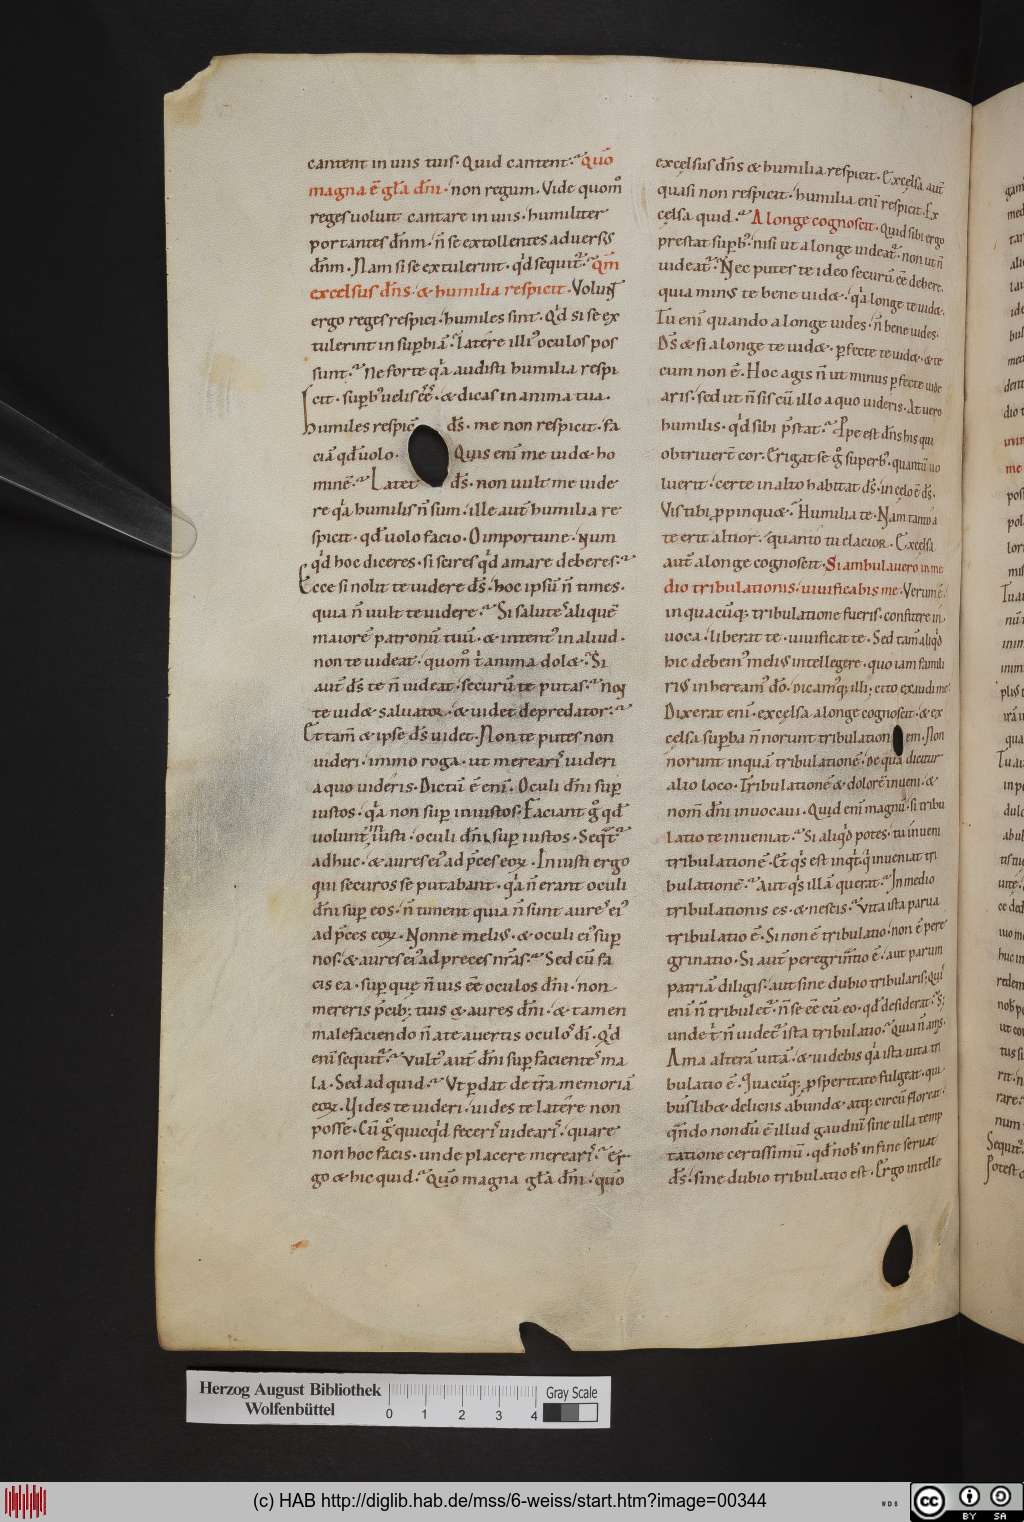 cantent in uiis tuis. Quid cantent. Qm̄o
magna ē gła dn̄i. non regum. Vide quom̊
reges uoluit cantare in uiis. humiliter
portantes dn̄m. n̄ se extollentes aduersus
dn̄m. Nam si se extulerint. qd̓ sequit᷑. Qm̄
excelsus dn̄s. & humilia respicit. Volunt
ergo reges respici. humiles sint. Qd̓ si se ex
tulerint in supbiā. latere illius oculos pos
sunt. Ne forte qa audisti humilia respi
cit. supb; uelis eē. & dicas in anima tua.
humiles respic ds̄. me non respicit. fa
ciā qđ uolo. Quis enī me uid& ho
minē. Latet ds̄. non uult me uide
re qa humilis n̄ sum. ille aut̄ humilia re
spicit. qđ uolo facio. O importune. Num
qd̓ hoc diceres. si scires qd̓ amare deberes.
Ecce si nolit te uidere ds̄. hoc ipsū n̄ times.
quia n̄ uult te uidere. Si salutes aliquē
maiorē patronū tuū. & intentus in aliud.
non te uideat. quom̊ t̓ anima dol&. Si
aut̄ ds̄ te n̄ uideat. securū te putas. Non
te uid& saluator. & uidet depredator.
Et tam̄ & ipse ds̄ uidet. Non te putes non
uideri. immo roga. ut merearis uideri
a quo uideris. Dictū ē enī. Oculi dn̄i sup
iustos. qa non sup iniustos. Faciant g̊ qđ
uolunt iusti. oculi dn̄i sup iustos. Seqt᷑
adhuc. & aures eius ad pces eoꝝ. Iniusti ergo
qui securos se putabant. qa n̄ erant oculi
dn̄i sup eos. n̄ timent quia n̄ sunt aures eius
ad pces eoꝝ. Nonne melius. & oculi eius sup
nos. & aures eius ad preces nr̄as. Sed cū fa
cis ea. sup que n̄ uis eē oculos dn̄i. non
mereris pcib; tuis & aures dn̄i. & tamen
malefaciendo n̄ a te auertis oculos dī. Qd̓
enī sequit᷑. Vultus aut̄ dn̄i sup facientes ma
la. Sed ad quid. Vt pdat de tr̄a memoriā
eoꝝ. Vides te uideri. uides te latere non
posse. Cū g̊ quicqd̓ feceris uidearis. quare
non hoc facis. unde placere merearis. Er
go & hic quid. Qm̄o magna gła dn̄i. quo
excelsus dn̄s & humilia respicit. Excelsa aut̄
quasi non respicit. humilia enī respicit. Ex
celsa quid. A longe cognoscit. Quid sibi ergo
prestat supb;. nisi ut a longe uideat᷑. non ut n̄
uideat᷑. Nec putes te ideo securū eē debere.
quia minus te bene uid&. qa longe te uid&.
Tu enī quando a longe uides. n̄ bene uides.
Ds̄ & si a longe te uid&. pfecte te uid&. & te
cum non ē. Hoc agis n̄ ut minus pfecte uide
aris. sed ut n̄ sis cū illo a quo uideris. At uero
humilis. qd̓ sibi pstat. Ppe est dn̄s his qui
obtriuert̄ cor. Erigat se g̊ superb;. quantū uo
luerit. certe in alto habitat ds̄. in celo ē ds̄.
Vis tibi ppinqu&. Humilia te. Nam tanto a
te erit altior. quanto tu elatior. Excelsa
aut̄ a longe cognoscit. Si ambulauero in me
dio tribulationis. uiuificabis me. Verum ē.
in quacūq; tribulatione fueris. confitere in
uoca. liberat te. uiuificat te. Sed tam̄ aliqd̓
hic debemus melius intellegere. quo iam famili
rius inhereamus dō. Dicamusq; illi; cito exaudi me.
Dixerat enī. excelsa a longe cognoscit. & ex
celsa superba n̄ norunt tribulation em. Non
norunt inquā tribulationē. de qua dicitur
alio loco. Tribulationē & dolorē inueni. &
nom̄ dn̄i inuocaui. Quid enī magnū. si tribu
latio te inueniat. Si aliqd̓ potes. tu inueni
tribulationē. Et qs est inqt. q inueniat tri
bulationē. Aut qs illā querat. In medio
tribulationis es. & nescis. Vita ista parua
tribulatio ē. Si non ē tribulatio. non ē pere
grinatio. Si aut̄ peregrinatio ē. aut parum
patriā diligis. aut sine dubio tribularis; Quis
enī n̄ tribulet᷑. n̄ se eē cū eo. qđ desiderat. S;
unde t̓ n̄ uidet᷑ ista tribulatio. Quia n̄ amas.
Ama alterā uitā. & uidebis qa ista uita tri
bulatio ē. Quacūq; psperitate fulgeat. qui
buslib& deliciis abund&. atq; circū floreat.
qn̄do nondū ē illud gaudiū sine ulla temp
tatione certissimū. qđ nob̄ in fine seruat
ds̄. sine dubio tribulatio est. Ergo intelle
Herzog August Bibliothek
Wolfenbüttel
0 1 2 3 4
Gray Scale
(c) HAB http://diglib.hab.de/mss/6-weiss/start.htm?image=00344
WDB
cc
BY SA